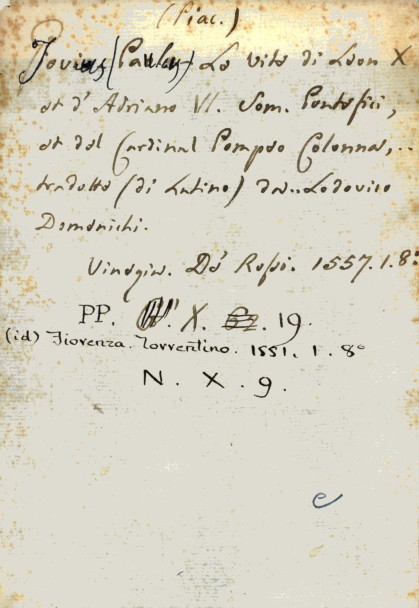 (Piac.)
Jovius (Paulus) Le vite di Leon X
et d' Adriano VI. Som. Pontefici,
et del Cardinal Pompeo Colonna,..
tradotte (di Latino) da.. Lodovico
Domenichi.
Vinegia. De' Rossi. 1557.1.8º
PP. X. 19.
(id) Fiorenza. Torrentino. 1551. 1. 8º
N. X. 9.
e